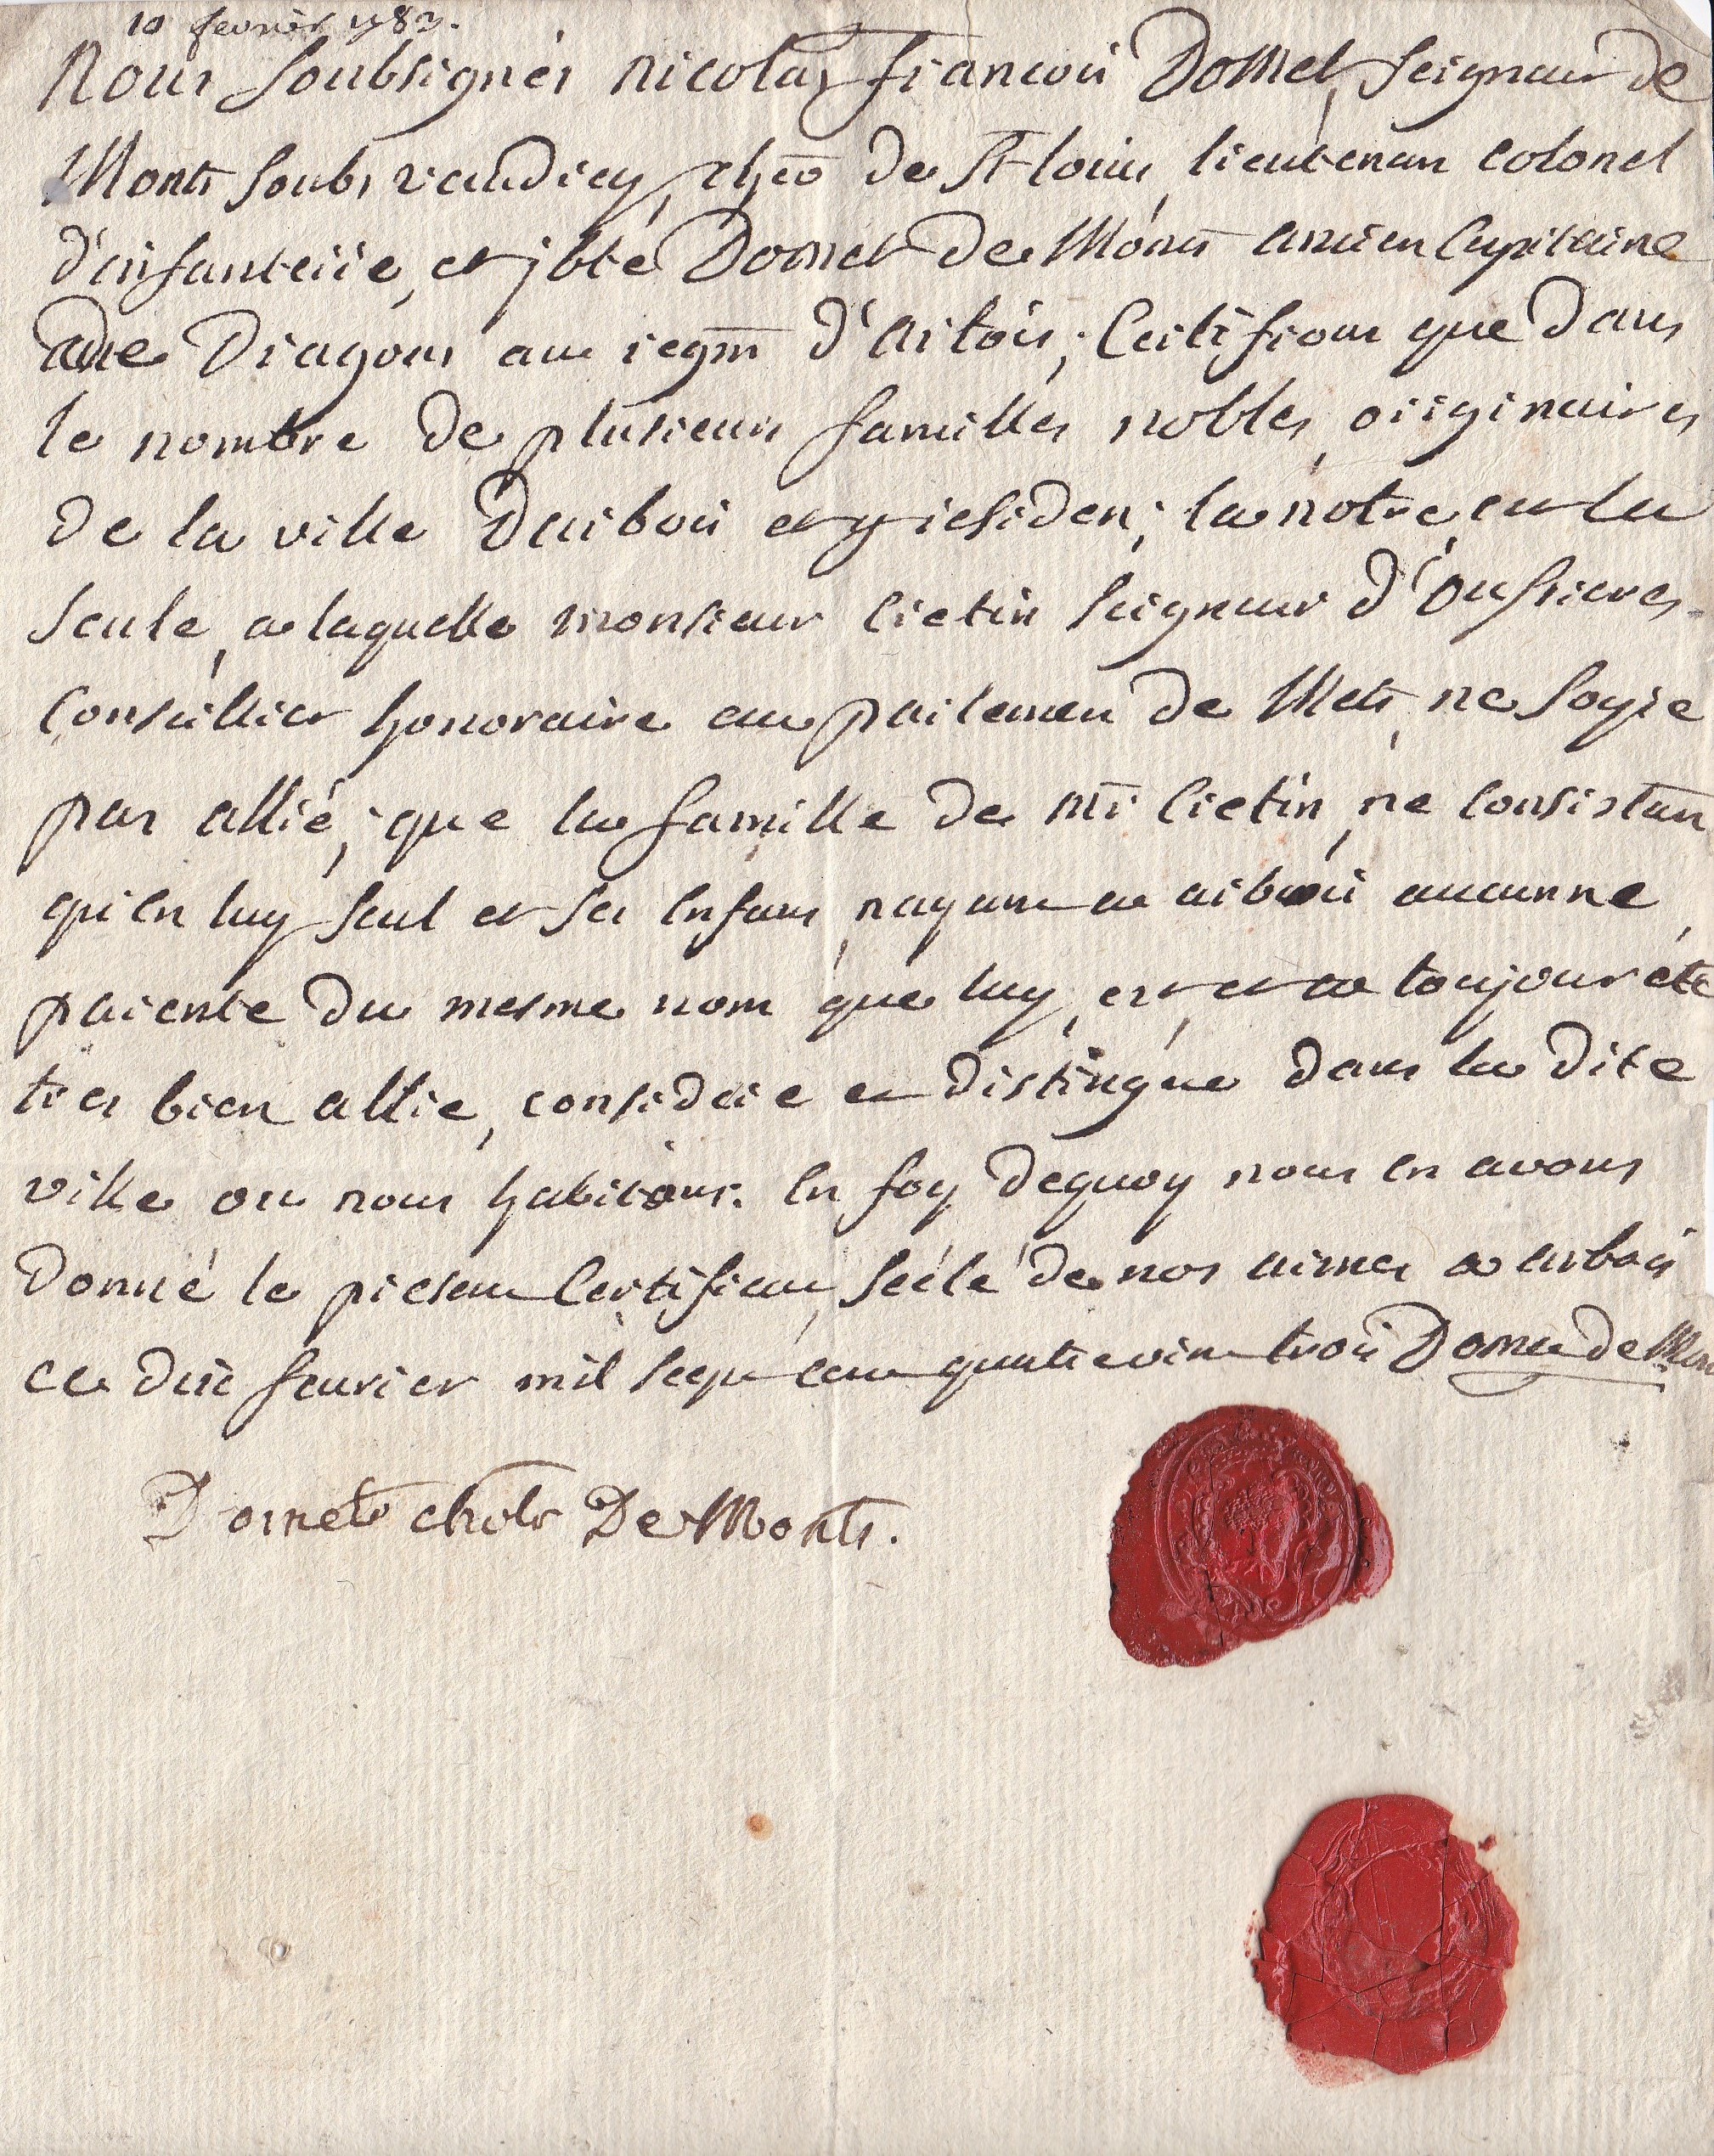 10 fevrier 1783.
Nous soubsignés nicolas francois Domet, seigneur de
Monts soubs vaudrey, cheō de St louis, lieutenan colonel
d'infanterie, et jbte Domet de Monts ancien Capitaine
de Dragons au regm̄ d'artois; Certifions que dans
le nombre de plusieurs familles nobles, originaires
de la ville Darbois et y residen; la notre, est la
seule, a laquelle monsieur Cretin seigneur d'Oussieres
Conseillier honoraire au parlemen de Mets, ne soyie
pas allié; que la famille de mr Cretin, ne consistan
qu'en luy seul et ses enfans, nayant a arbois aucunne,
parente du mesme nom que luy, est, et a toujour été
tres bien allie, considere et distingue dans la dite
ville ou nous habitons. en foy dequoy nous en avons
donné le presen Certificat, scélé de nos armes a arbois
ce dix feurier mil sept cen quatrevin trois Domet de Mon
Domet chvlr De Monts.